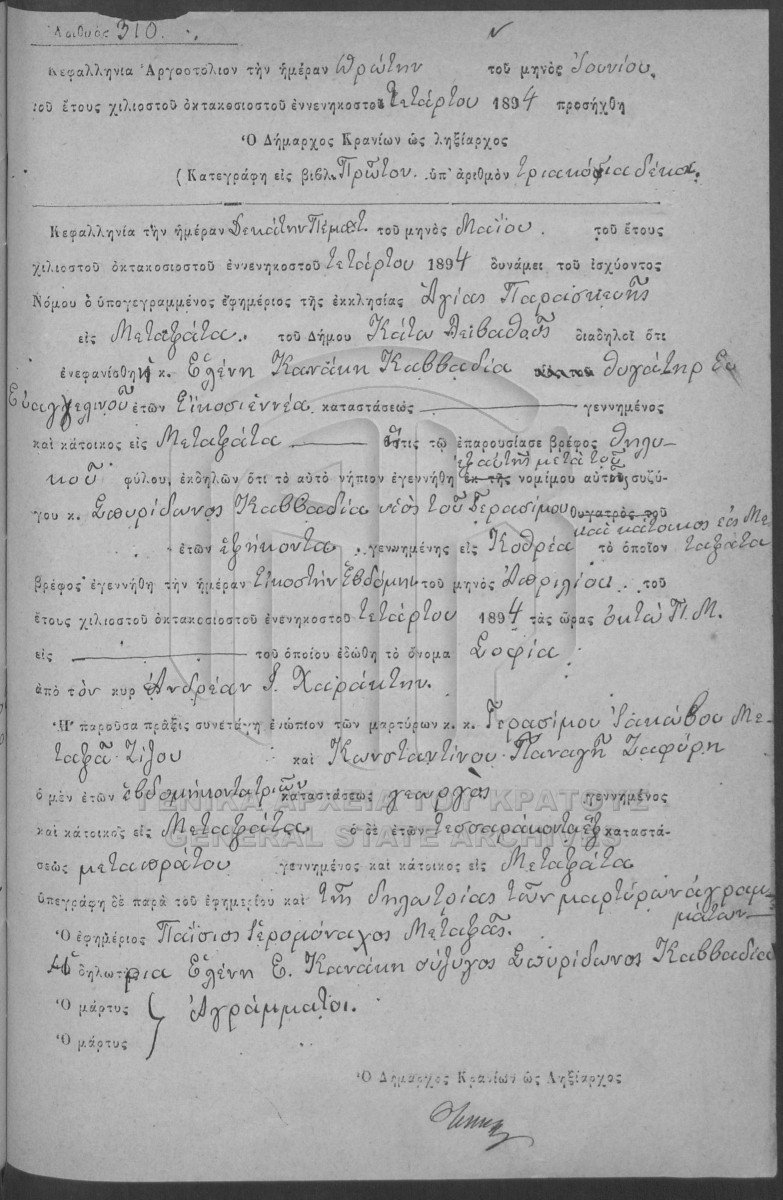 Ἀριθμὸς 310.
Κεφαλληνία Ἀργοστόλιον τὴν ἡμέραν Πρώτην τοῦ μηνὸς Ἰουνίου
τοῦ ἔτους χιλιοστοῦ ὀκτακοσιοστοῦ ἐννενηκοστοῦ τετάρτου 1894 προσήχθη
Ὁ Δήμαρχος Κρανίων ὡς ληξίαρχος
(Κατεγράφη εἰς βιβλ. Πρῶτον ὑπ' ἀριθμὸν τριακόσια δέκα.
Κεφαλληνία τὴν ἡμέραν Δεκάτην Πέμπτ. τοῦ μηνὸς Μαΐου. τοῦ ἔτους
χιλιοστοῦ ὀκτακοσιοστοῦ ἐννενηκοστοῦ τετάρτου 1894 δυνάμει τοῦ ἰσχύοντος
Νόμου ὁ ὑπογεγραμμένος ἐφημέριος τῆς ἐκκλησίας Ἁγίας Παρασκευῆς
εἰς Μεταξάτα. τοῦ Δήμου Κάτω Λειβαθοῦς διαδηλοῖ ὅτι
ἐνεφανίσθη ἡ κ. Ἑλένη Κανάκη Καββαδία θυγάτηρ
Εὐαγγελινοῦ ἐτῶν Εἰκοσιεννέα καταστάσεως γεννημένος
καὶ κάτοικος εἰς Μεταξάτα ἥτις τῷ ἐπαρουσίασε βρέφος θηλυ-
κοῦ φύλου, ἐκδηλῶν ὅτι τὸ αὐτὸ νήπιον ἐγεννήθη ἐκ τῆς ἐξ αὐτῆς μετὰ τοῦ νομίμου αὐτῆς συζύ-
γου κ. Σπυρίδωνος Καββαδία υἱὸς τοῦ Γερασίμου θυγατρὸς τοῦ
ἐτῶν ἑξήκοντα γεννημένης εἰς Κοθρέα καὶ κάτοικος εἰς Με
ταξάτα τὸ ὁποῖον
βρέφος ἐγεννήθη τὴν ἡμέραν Εἰκοστὴν Ἑβδόμην τοῦ μηνὸς Ἀπριλίου. τοῦ
ἔτους χιλιοστοῦ ὀκτακοσιοστοῦ ἐνενηκοστοῦ τετάρτου 1894 τὰς ὥρας ὀκτὼ Π.Μ.
εἰς τοῦ ὁποίου ἐδώθη τὸ ὄνομα Σοφία
ἀπὸ τὸν κυρ Ἀνδρέαν Χαράκτην.
Ἡ παροῦσα πρᾶξις συνετάγη ἐνώπιον τῶν μαρτύρων κ. κ. Γερασίμου Ἰακώβου Με-
ταξᾶ Ζίζου καὶ Κωνσταντίνου Παναγῆ Ζαφύρη
ὁ μὲν ἐτῶν ἑβδομήκοντα τριῶν καταστάσεως γεωργὸς γεννημένος
καὶ κάτοικος εἰς Μεταξάτα ὁ δὲ ἐτῶν τεσσαράκοντα ἓξ καταστά-
σεως μεταπράτου γεννημένος καὶ κάτοικος εἰς Μεταξάτα
ὑπεγράφη δὲ παρὰ τοῦ ἐφημερίου καὶ τῆς δηλωτρίας τῶν μαρτύρων ἀγραμ-
μάτων
Ὁ ἐφημέριος Παΐσιος Ἱερομόναχος Μεταξᾶς.
Ἡ δηλωτρια Ἑλένη Ε. Κανάκη σύζυγος Σπυρίδωνος Καββαδία
Ὁ μάρτυς
Ἀγράμματοι.
Ὁ μάρτυς
Ὁ Δήμαρχος Κρανίων ὡς Ληξίαρχος
ΓΕΝΙΚΑ ΑΡΧΕΙΑ ΤΟΥ ΚΡΑΤΟΥΣ
GENERAL STATE ARCHIVES